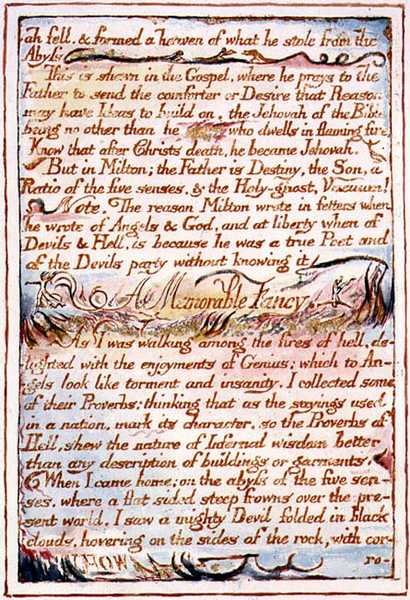 ah fell, & formed a heaven of what he stole from the
Abyss
This is shewn in the Gospel, where he prays to the
Father to send the comforter or Desire that Reason
may have Ideas to build on, the Jehovah of the Bible
being no other than he who dwells in flaming fire
Know that after Christs death, he became Jehovah.
But in Milton; the Father is Destiny, the Son, a
Ratio of the five senses, & the Holy-ghost, Vacuum!
Note. The reason Milton wrote in fetters when
he wrote of Angels & God, and at liberty when of
Devils & Hell, is because he was a true Poet and
of the Devils party without knowing it
A Memorable Fancy.
As I was walking among the fires of hell, de-
lighted with the enjoyments of Genius; which to An-
gels look like torment and insanity. I collected some
of their Proverbs: thinking that as the sayings used
in a nation, mark its character, so the Proverbs of
Hell, shew the nature of Infernal wisdom better
than any description of buildings or garments.
When I came home; on the abyss of the five sen-
ses, where a flat sided steep frowns over the pre-
sent world. I saw a mighty Devil folded in black
clouds, hovering on the sides of the rock, with cor-
ro-